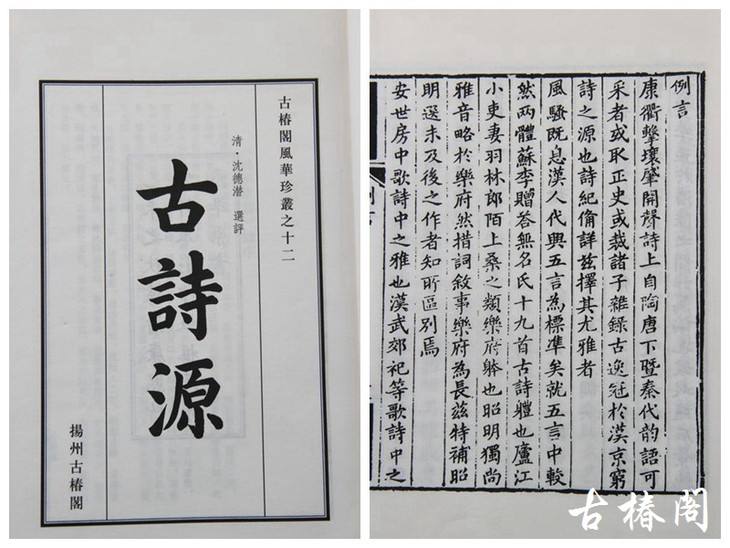 古椿閣風華珍叢之十二
清·沈德潛 選評
古詩源
揚州古椿閣
例言
康衢擊壤肇開聲詩上自陶唐下暨秦代韵語可
采者或取正史或裁諸子雜錄古逸冠於漢京窮
詩之源也詩紀俻詳茲擇其尤雅者
風騷既息漢人代興五言為標準矣就五言中較
然兩體蘇李贈答無名氏十九首古詩體也廬江
小吏妻羽林郎陌上桑之類樂府躰也昭明獨尚
雅音略於樂府然措詞敘事樂府為長茲特補昭
明選未及後之作者知所區別焉
安世房中歌詩中之雅也漢武郊祀等歌詩中之
古椿閣